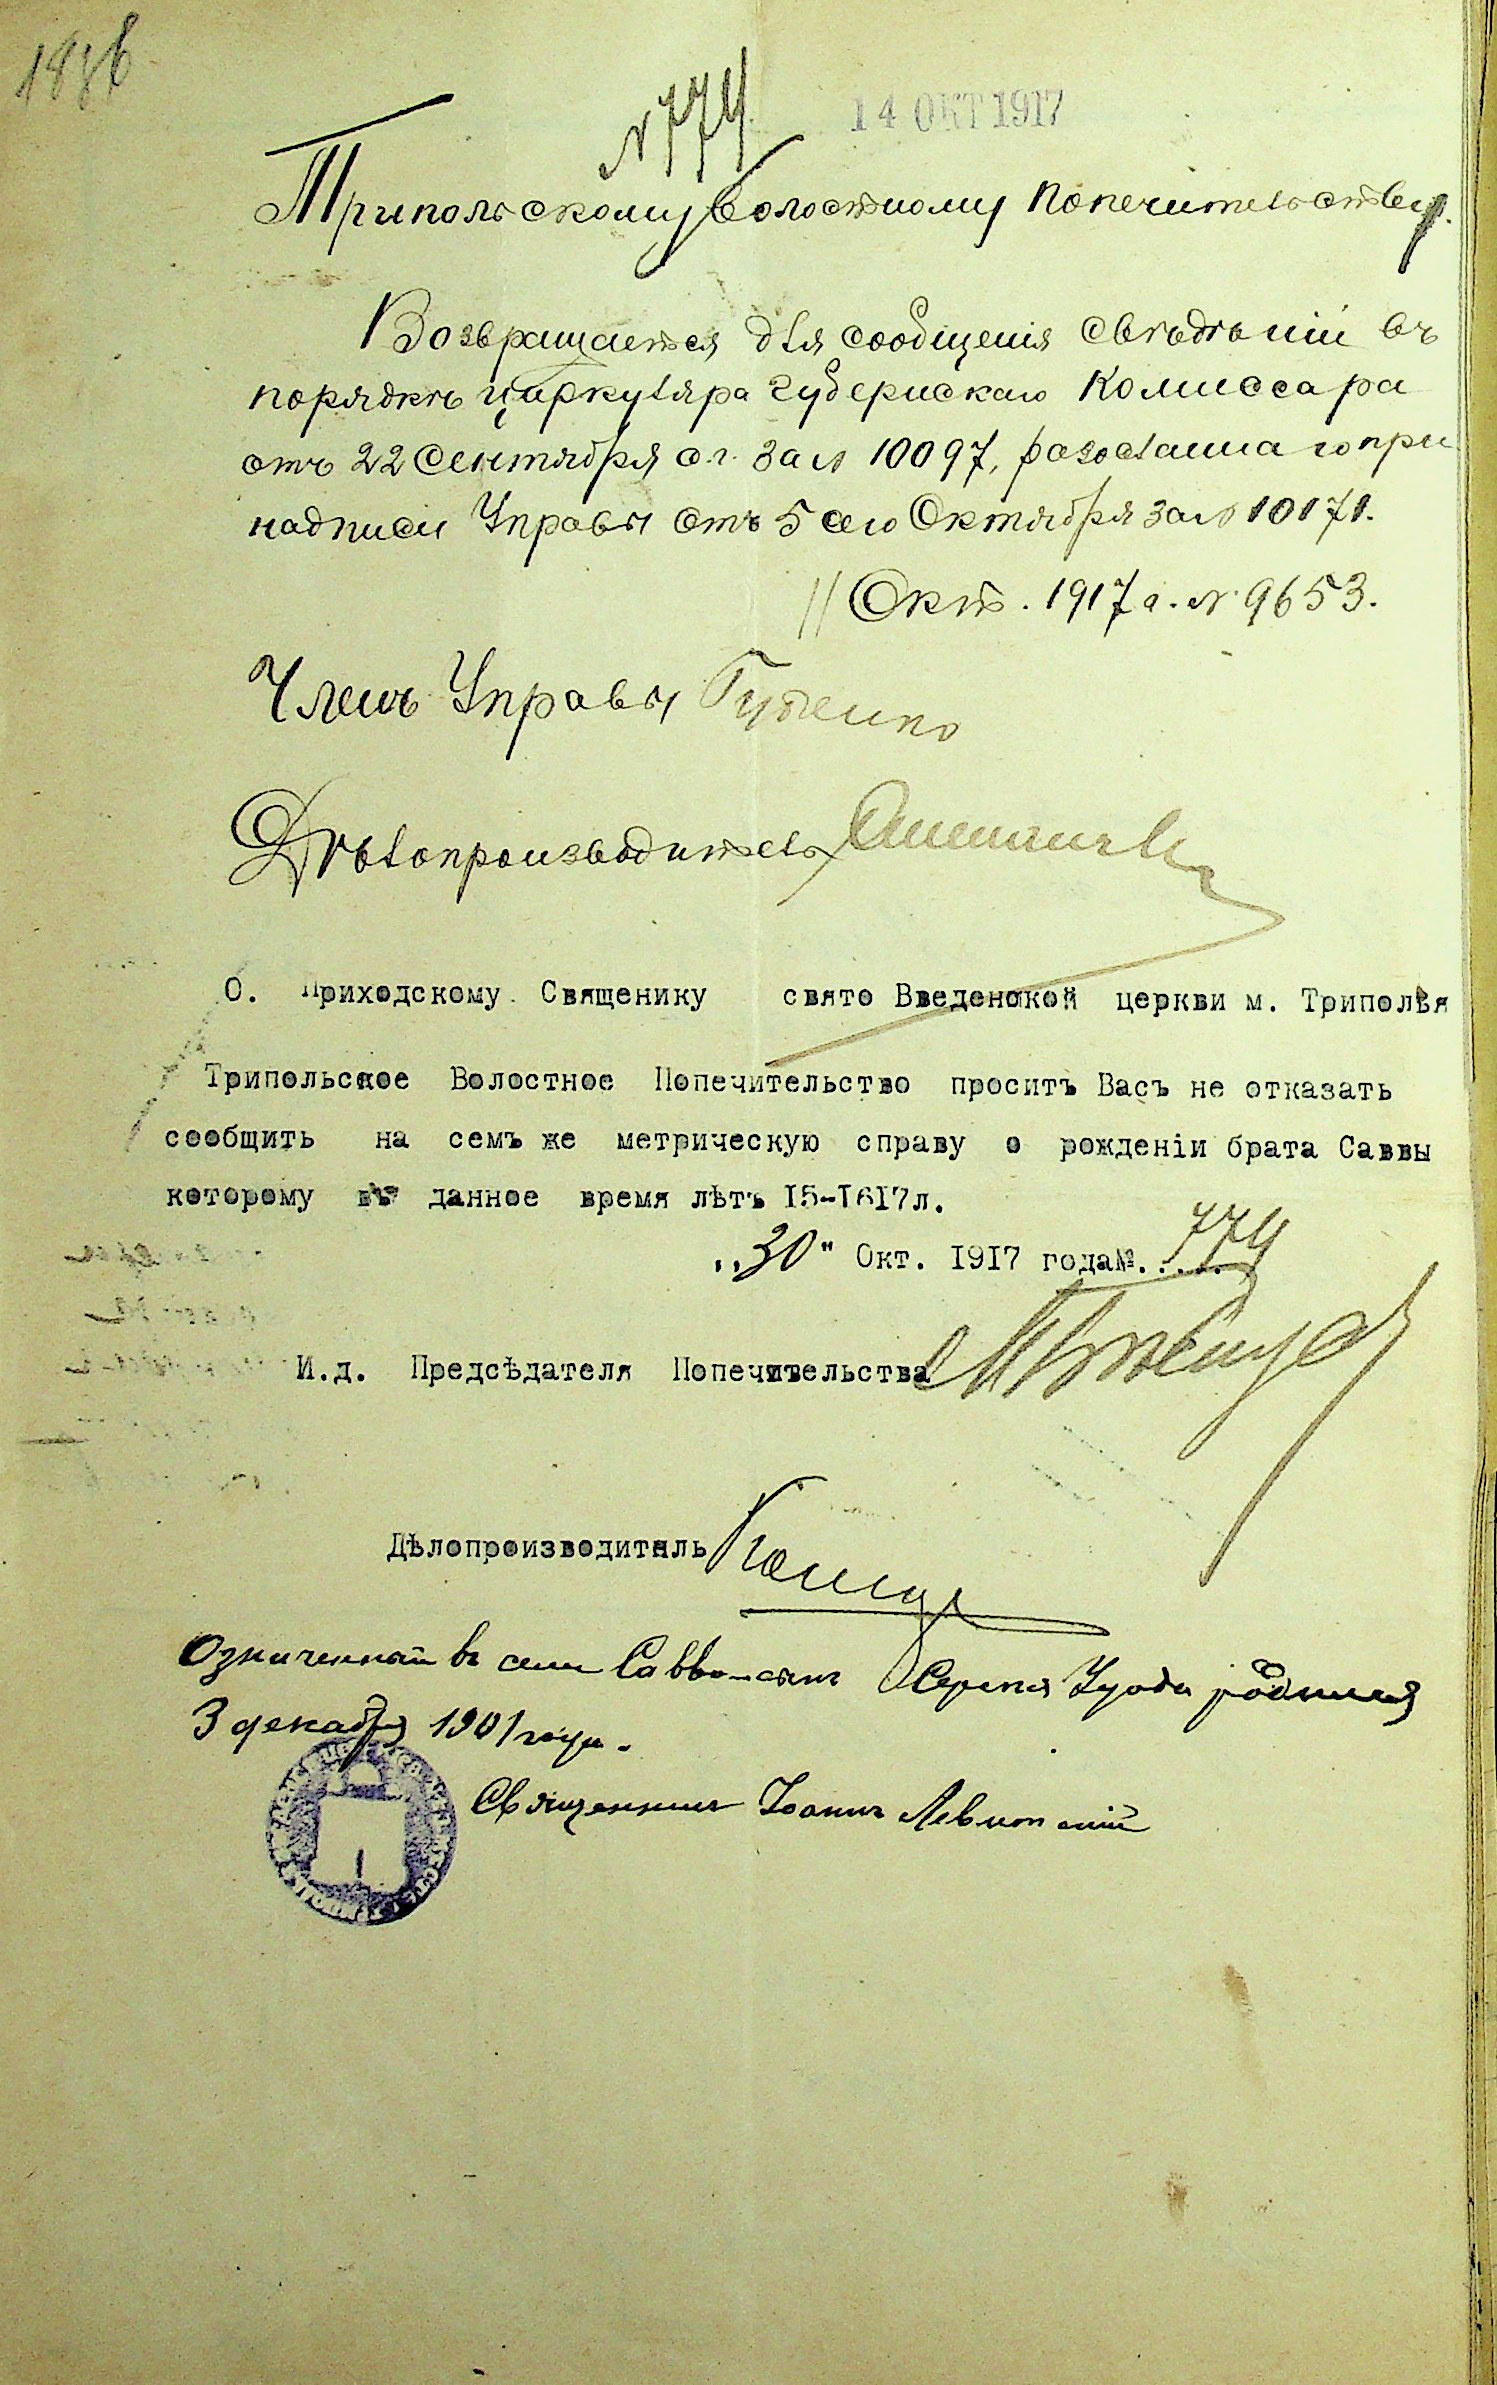 №774
14 ОКТ 1917
Трипольскому Волостному Попечительству.
Возвращается для сообщенія свѣдѣній въ
порядкѣ циркуляра Губернскаго Комиссара
отъ 22 Сентября с.г. за № 10097, разосланнаго при
надписи Управы отъ 5 сего Октября за № 10171.
11 Окт. 1917 г. № 9653.
Членъ Управы
Дѣлопроизводитель
О. Приходскому Священику свято Введенской церкви м. Триполья
Трипольское Волостное Попечительство проситъ Васъ не отказать
сообщить на семъ же метрическую справу о рожденіи брата Саввы
которому въ данное время лѣтъ 15-1617л.
„30" Окт. 1917 года №..774
И.д. Предсѣдателя Попечительства
Дѣлопроизводитель
Означенный въ семъ Савва-сынъ Сергія родился
3 декабря 1901 года.
Священникъ Іоаннъ Левитскій